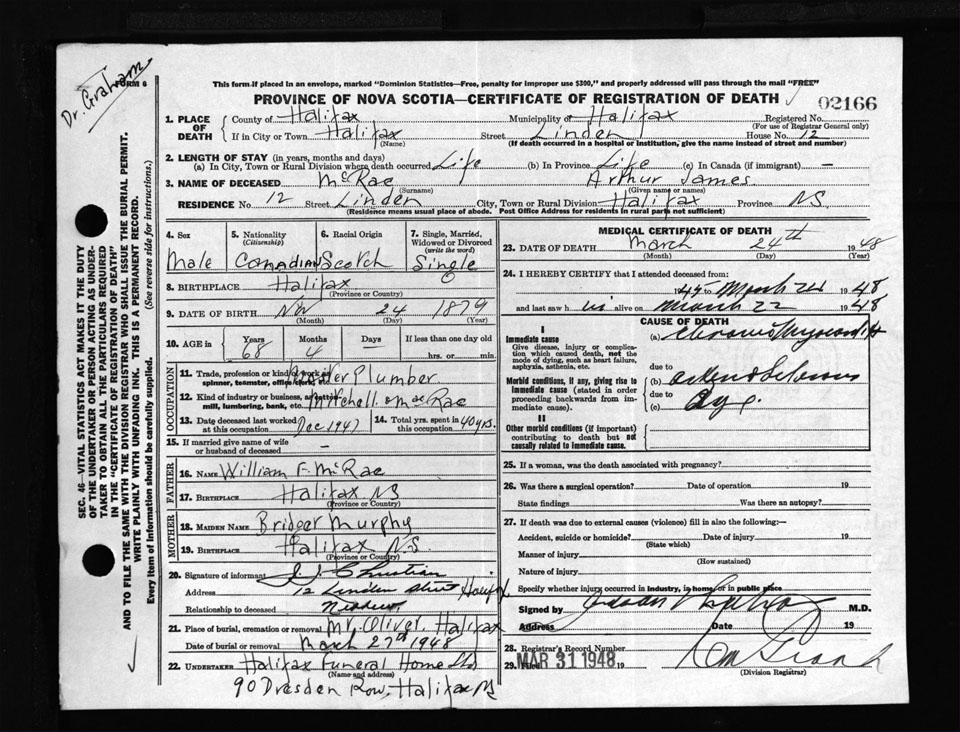 Dr. Graham
FORM 6
This form if placed in an envelope, marked "Dominion Statistics—Free, penalty for improper use $300," and properly addressed will pass through the mail "FREE"
PROVINCE OF NOVA SCOTIA—CERTIFICATE OF REGISTRATION OF DEATH
02166
1. PLACE OF DEATH
County of Halifax Municipality of Halifax Registered No.
(For use of Registrar General only)
If in City or Town Halifax Street Linden House No. 12
(Name) (If death occurred in a hospital or institution, give the name instead of street and number)
2. LENGTH OF STAY (in years, months and days)
(a) In City, Town or Rural Division where death occurred Life (b) In Province Life (c) In Canada (if immigrant) —
3. NAME OF DECEASED McRae Arthur James
(Surname) (Given name or names)
RESIDENCE No 12 Street Linden City, Town or Rural Division Halifax Province NS.
(Residence means usual place of abode. Post Office Address for residents in rural parts not sufficient)
4. Sex
Male
5. Nationality
(Citizenship)
Canadian
6. Racial Origin
Scotch
7. Single, Married, Widowed or Divorced
(write the word)
Single
8. BIRTHPLACE Halifax
(Province or Country)
9. DATE OF BIRTH Nov 24 1879
(Month) (Day) (Year)
10. AGE in Years Months Days If less than one day old
68 4 — hrs. or min.
OCCUPATION
11. Trade, profession or kind of work as spinner, teamster, office Plumber
12. Kind of industry or business, as cotton mill, lumbering, bank, etc. Mitchell & MacRae
13. Date deceased last worked at this occupation Dec 1947
14. Total yrs. spent in this occupation 40 yrs.
15. If married give name of wife or husband of deceased —
FATHER
16. NAME William F. McRae
17. BIRTHPLACE Halifax NS
(Province or Country)
MOTHER
18. MAIDEN NAME Bridget Murphy
19. BIRTHPLACE Halifax N.S.
(Province or Country)
20. Signature of informant Christian
Address 12 Linden Street Halifax
Relationship to deceased Nephew
21. Place of burial, cremation or removal Mt. Olivet, Halifax
Date of burial or removal March 27th 1948
22. UNDERTAKER Halifax Funeral Home Ltd
(Name and address)
90 Dresden Row, Halifax NS
MEDICAL CERTIFICATE OF DEATH
23. DATE OF DEATH March 24th 1948
(Month) (Day) (Year)
24. I HEREBY CERTIFY that I attended deceased from:
1945 to March 24 1948
and last saw him alive on March 22 1948
CAUSE OF DEATH
I
Immediate cause
Give disease, injury or complication which caused death, not the mode of dying, such as heart failure, asphyxia, asthenia, etc.
(a) Chronic Myocarditis
due to
Morbid conditions, if any, giving rise to immediate cause (stated in order proceeding backwards from immediate cause).
(b) Arteriosclerosis
due to
(c) Age.
II
Other morbid conditions (if important) contributing to death but not causally related to immediate cause.
25. If a woman, was the death associated with pregnancy?
26. Was there a surgical operation? Date of operation 19
State findings Was there an autopsy?
27. If death was due to external causes (violence) fill in also the following:—
Accident, suicide or homicide? Date of injury 19
(State which)
Manner of injury
(How sustained)
Nature of injury
Specify whether injury occurred in industry, in home, or in public place
Signed by M.D.
Address Date 19
28. Registrar's Record Number
29. MAR 31 1948 19
(Division Registrar)
SEC. 46 VITAL STATISTICS ACT MAKES IT THE DUTY
OF THE UNDERTAKER OR PERSON ACTING AS UNDER-
TAKER TO OBTAIN ALL THE PARTICULARS REQUIRED
IN THE "CERTIFICATE OF REGISTRATION OF DEATH"
AND TO FILE THE SAME WITH THE DIVISION REGISTRAR WHO SHALL ISSUE THE BURIAL PERMIT.
WRITE PLAINLY WITH UNFADING INK. THIS IS A PERMANENT RECORD.
Every item of Information should be carefully supplied. (See reverse side for instructions.)